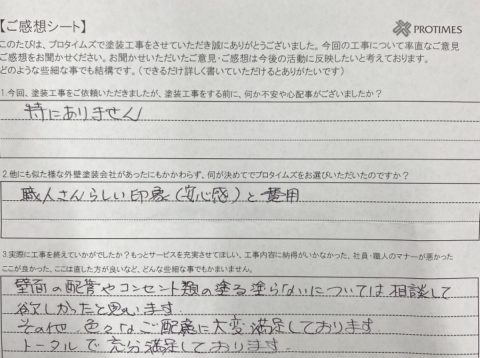 【ご感想シート】
PROTIMES
このたびは、プロタイムズで塗装工事をさせていただき誠にありがとうございました。今回の工事について率直なご意見
ご感想をお聞かせください。お聞かせいただいたご意見・ご感想は今後の活動に反映したいと考えております。
どのような些細な事でも結構です。（できるだけ詳しく書いていただけるとありがたいです）
1.今回、塗装工事をご依頼いただきましたが、塗装工事をする前に、何か不安や心配事がございましたか？
特にありません
2.他にも似た様な外壁塗装会社があったにもかかわらず、何が決めてでプロタイムズをお選びいただいたのですか？
職人さんらしい印象（安心感）と費用
3.実際に工事を終えていかがでしたか？もっとサービを充実させてほしい、工事内容に納得がいかなかった、社員・職人のマナーが悪かった
ここが良かった、ここは直した方が良いなど、どんな些細な事でもかまいません。
壁面の配管やコンセント類の塗る塗らないについては相談して
欲しかったと思います
その他、色々なご配慮に大変満足しております
トータルで充分満足しております